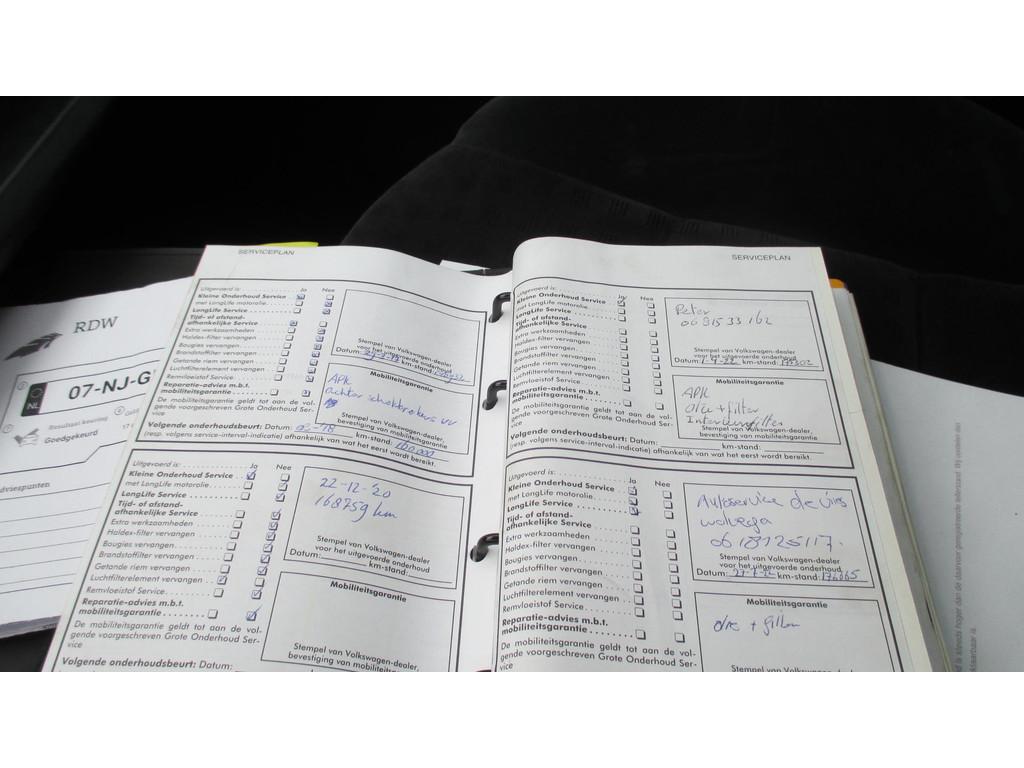 RDW
07-NJ-G
NL
Resultaat keuring
Goedgekeurd
dviespunten
SERVICEPLAN
Uitgevoerd is: Ja Nee
Kleine Onderhoud Service
met LongLife motorolie
LongLife Service
Tijd- of afstand-
afhankelijke Service
Extra werkzaamheden
Haldex-filter vervangen
Bougies vervangen
Brandstoffilter vervangen
Getande riem vervangen
Luchtfilterelement vervangen
Remvloeistof Service
Reparatie-advies m.b.t.
mobiliteitsgarantie
De mobiliteitsgarantie geldt tot aan de vol-
gende voorgeschreven Grote Onderhoud Ser-
vice
Stempel van Volkswagen-dealer
voor het uitgevoerde onderhoud
Datum: km-stand:
Mobiliteitsgarantie
APK
achter schokbrekers vv
Stempel van Volkswagen-dealer,
bevestiging van mobiliteitsgarantie
Volgende onderhoudsbeurt: Datum: km-stand:
(resp. volgens service-interval-indicatie) afhankelijk van wat het eerst wordt bereikt.
Uitgevoerd is: Ja Nee
Kleine Onderhoud Service
met LongLife motorolie
LongLife Service
Tijd- of afstand-
afhankelijke Service
Extra werkzaamheden
Haldex-filter vervangen
Bougies vervangen
Brandstoffilter vervangen
Getande riem vervangen
Luchtfilterelement vervangen
Remvloeistof Service
Reparatie-advies m.b.t.
mobiliteitsgarantie
De mobiliteitsgarantie geldt tot aan de vol-
gende voorgeschreven Grote Onderhoud Ser-
vice
22-12-'20
168759 km
Stempel van Volkswagen-dealer
voor het uitgevoerde onderhoud
Datum: km-stand:
Mobiliteitsgarantie
Stempel van Volkswagen-dealer,
bevestiging van mobiliteitsgarantie
Volgende onderhoudsbeurt: Datum:
SERVICEPLAN
Uitgevoerd is: Ja Nee
Kleine Onderhoud Service
met LongLife motorolie
LongLife Service
Tijd- of afstand-
afhankelijke Service
Extra werkzaamheden
Haldex-filter vervangen
Bougies vervangen
Brandstoffilter vervangen
Getande riem vervangen
Luchtfilterelement vervangen
Remvloeistof Service
Reparatie-advies m.b.t.
mobiliteitsgarantie
De mobiliteitsgarantie geldt tot aan de vol-
gende voorgeschreven Grote Onderhoud Ser-
vice
Peter
Stempel van Volkswagen-dealer
voor het uitgevoerde onderhoud
Datum: km-stand:
Mobiliteitsgarantie
APK
olie + filter
Interieurfilter
Stempel van Volkswagen-dealer,
bevestiging van mobiliteitsgarantie
Volgende onderhoudsbeurt: Datum: km-stand:
(resp. volgens service-interval-indicatie) afhankelijk van wat het eerst wordt bereikt.
Uitgevoerd is: Ja Nee
Kleine Onderhoud Service
met LongLife motorolie
LongLife Service
Tijd- of afstand-
afhankelijke Service
Extra werkzaamheden
Haldex-filter vervangen
Bougies vervangen
Brandstoffilter vervangen
Getande riem vervangen
Luchtfilterelement vervangen
Remvloeistof Service
Reparatie-advies m.b.t.
mobiliteitsgarantie
De mobiliteitsgarantie geldt tot aan de vol-
gende voorgeschreven Grote Onderhoud Ser-
vice
Autoservice de vries
wolvega
0618125117
Stempel van Volkswagen-dealer
voor het uitgevoerde onderhoud
Datum: km-stand:
Mobiliteitsgarantie
olie + filter
Stempel van Volkswagen-dealer,